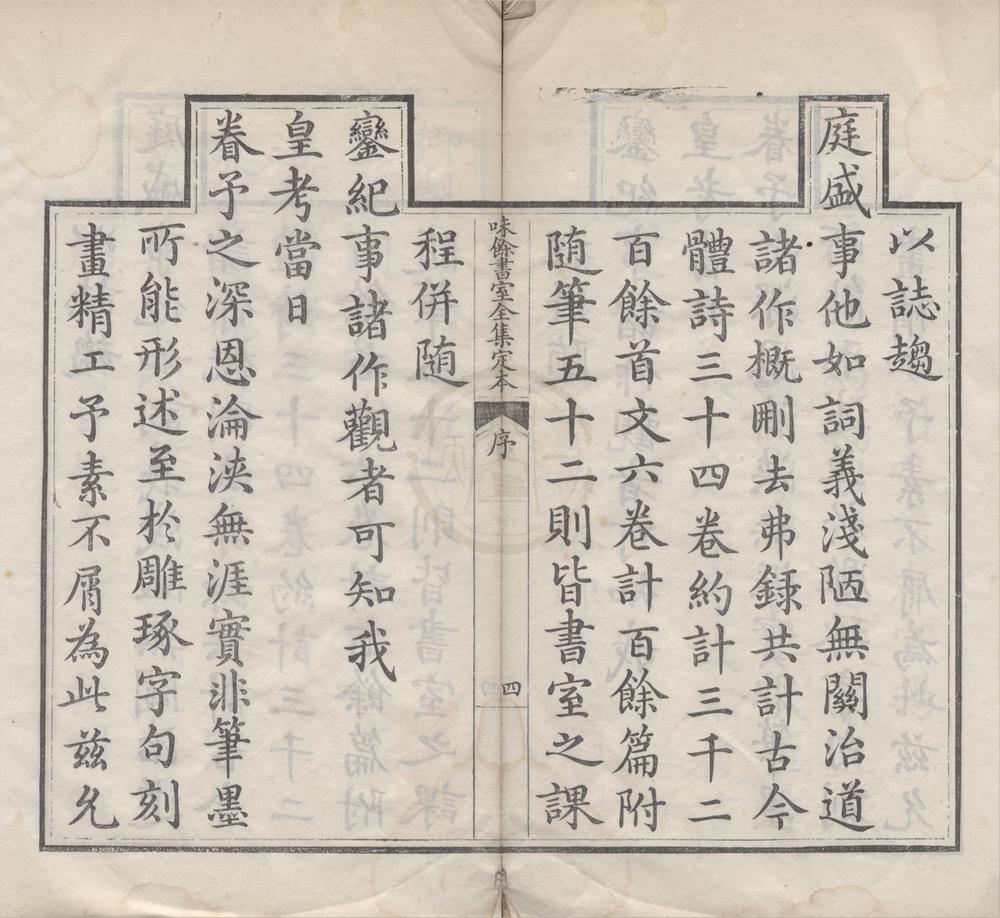 以誌趨
庭盛事他如詞義淺陋無關治道
諸作概刪去弗錄共計古今
體詩三十四卷約計三千二
百餘首文六卷計百餘篇附
随筆五十二則皆書室之課
味餘書室全集定本 序 四
程併随
鑾紀事諸作觀者可知我
皇考當日
眷予之深恩淪浹無涯實非筆墨
所能形述至於雕琢字句刻
畫精工予素不屑為此茲允